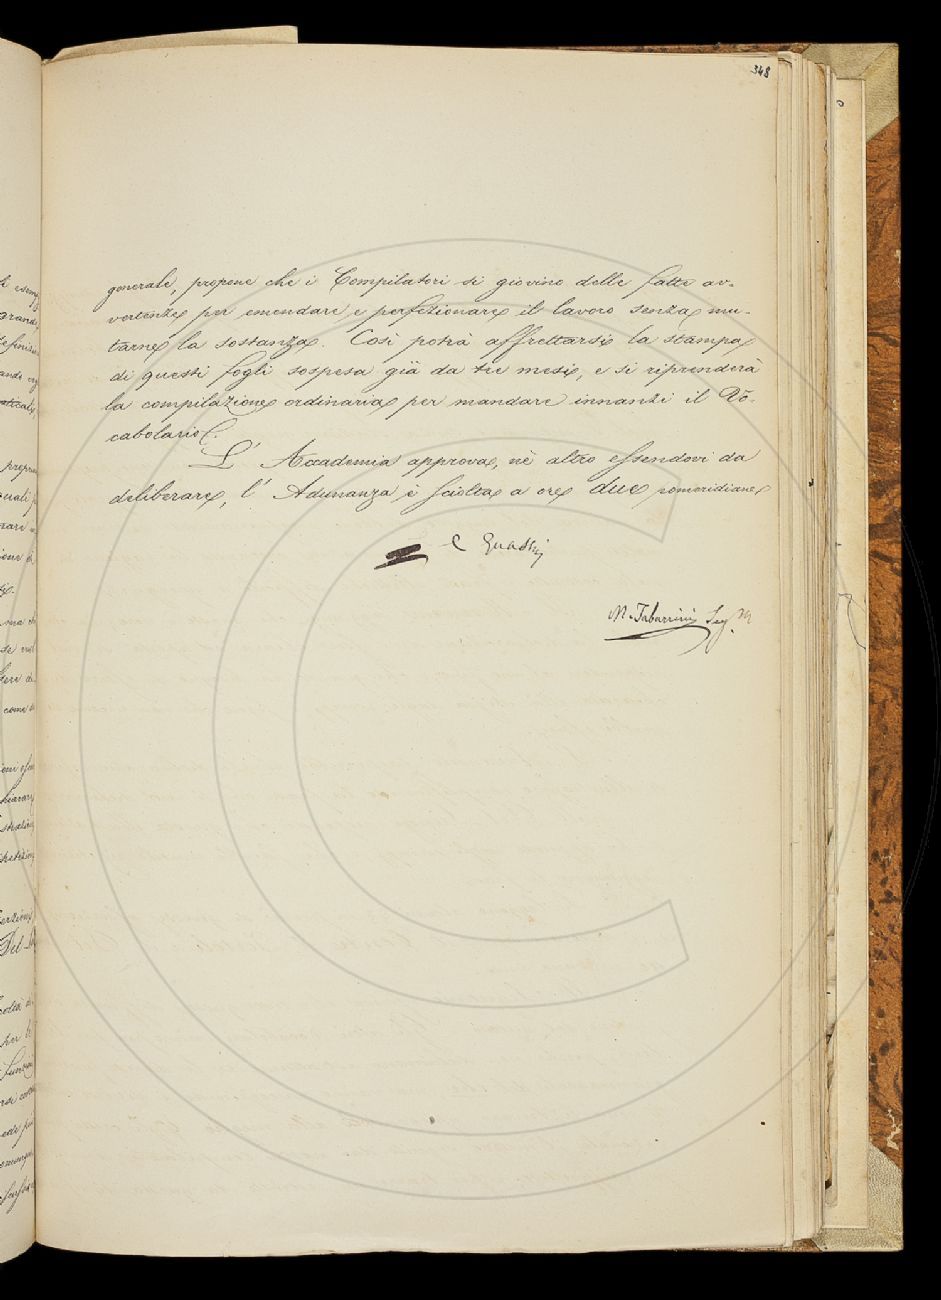 348
generale, propone che i Compilatori si giovino delle fatte av-
vertenze per emendare, e perfezionare il lavoro senza mu-
tarne la sostanza. Così potrà affrettarsi la stampa
di questi fogli sospesa già da tre mesi, e si riprenderà
la compilazione ordinaria per mandare innanzi il Vo-
cabolario.
L' Accademia approva, nè altro essendovi da
deliberare, l' Adunanza è sciolta a ore due pomeridiane
C Guasti
M. Tabarrini Seg.